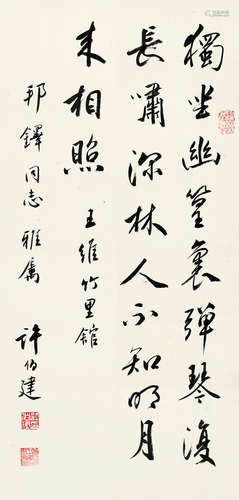 獨坐幽篁裏彈琴復
長嘯深林人不知明月
来相照 王維竹里館
邦鐸同志雅属
許伯建